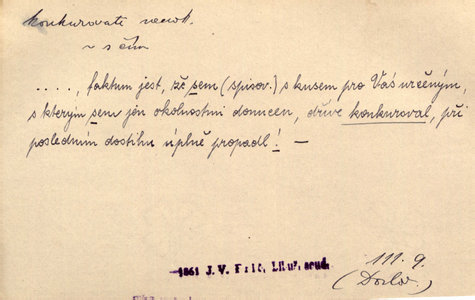 konkurovati nedok.
~ s čím
...., faktum jest, že sem (spisov.) s kusem pro Vás určeným,
s kterým sem jen okolnostmi donucen, dříve konkuroval, při
posledním dostihu úplně propadl! —
1861 J. V. Frič,
111. 9.
(Doslov.)